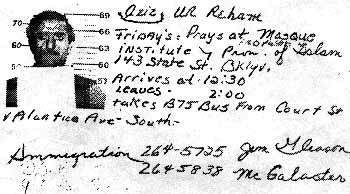 69
70
66
63
60
60
57
Aziz, UR Reham
FRIDAY'S: Prays at Mosque
INSTITUTE of Prom. of Islam
143 State St. Bklyn.
Arrives at 12:30
Leaves - 2:00
takes B75 Bus From Court St
& Atlantic Ave - South -
Immigration 264-5735 Jim Gleason
264 5838 McGalaster